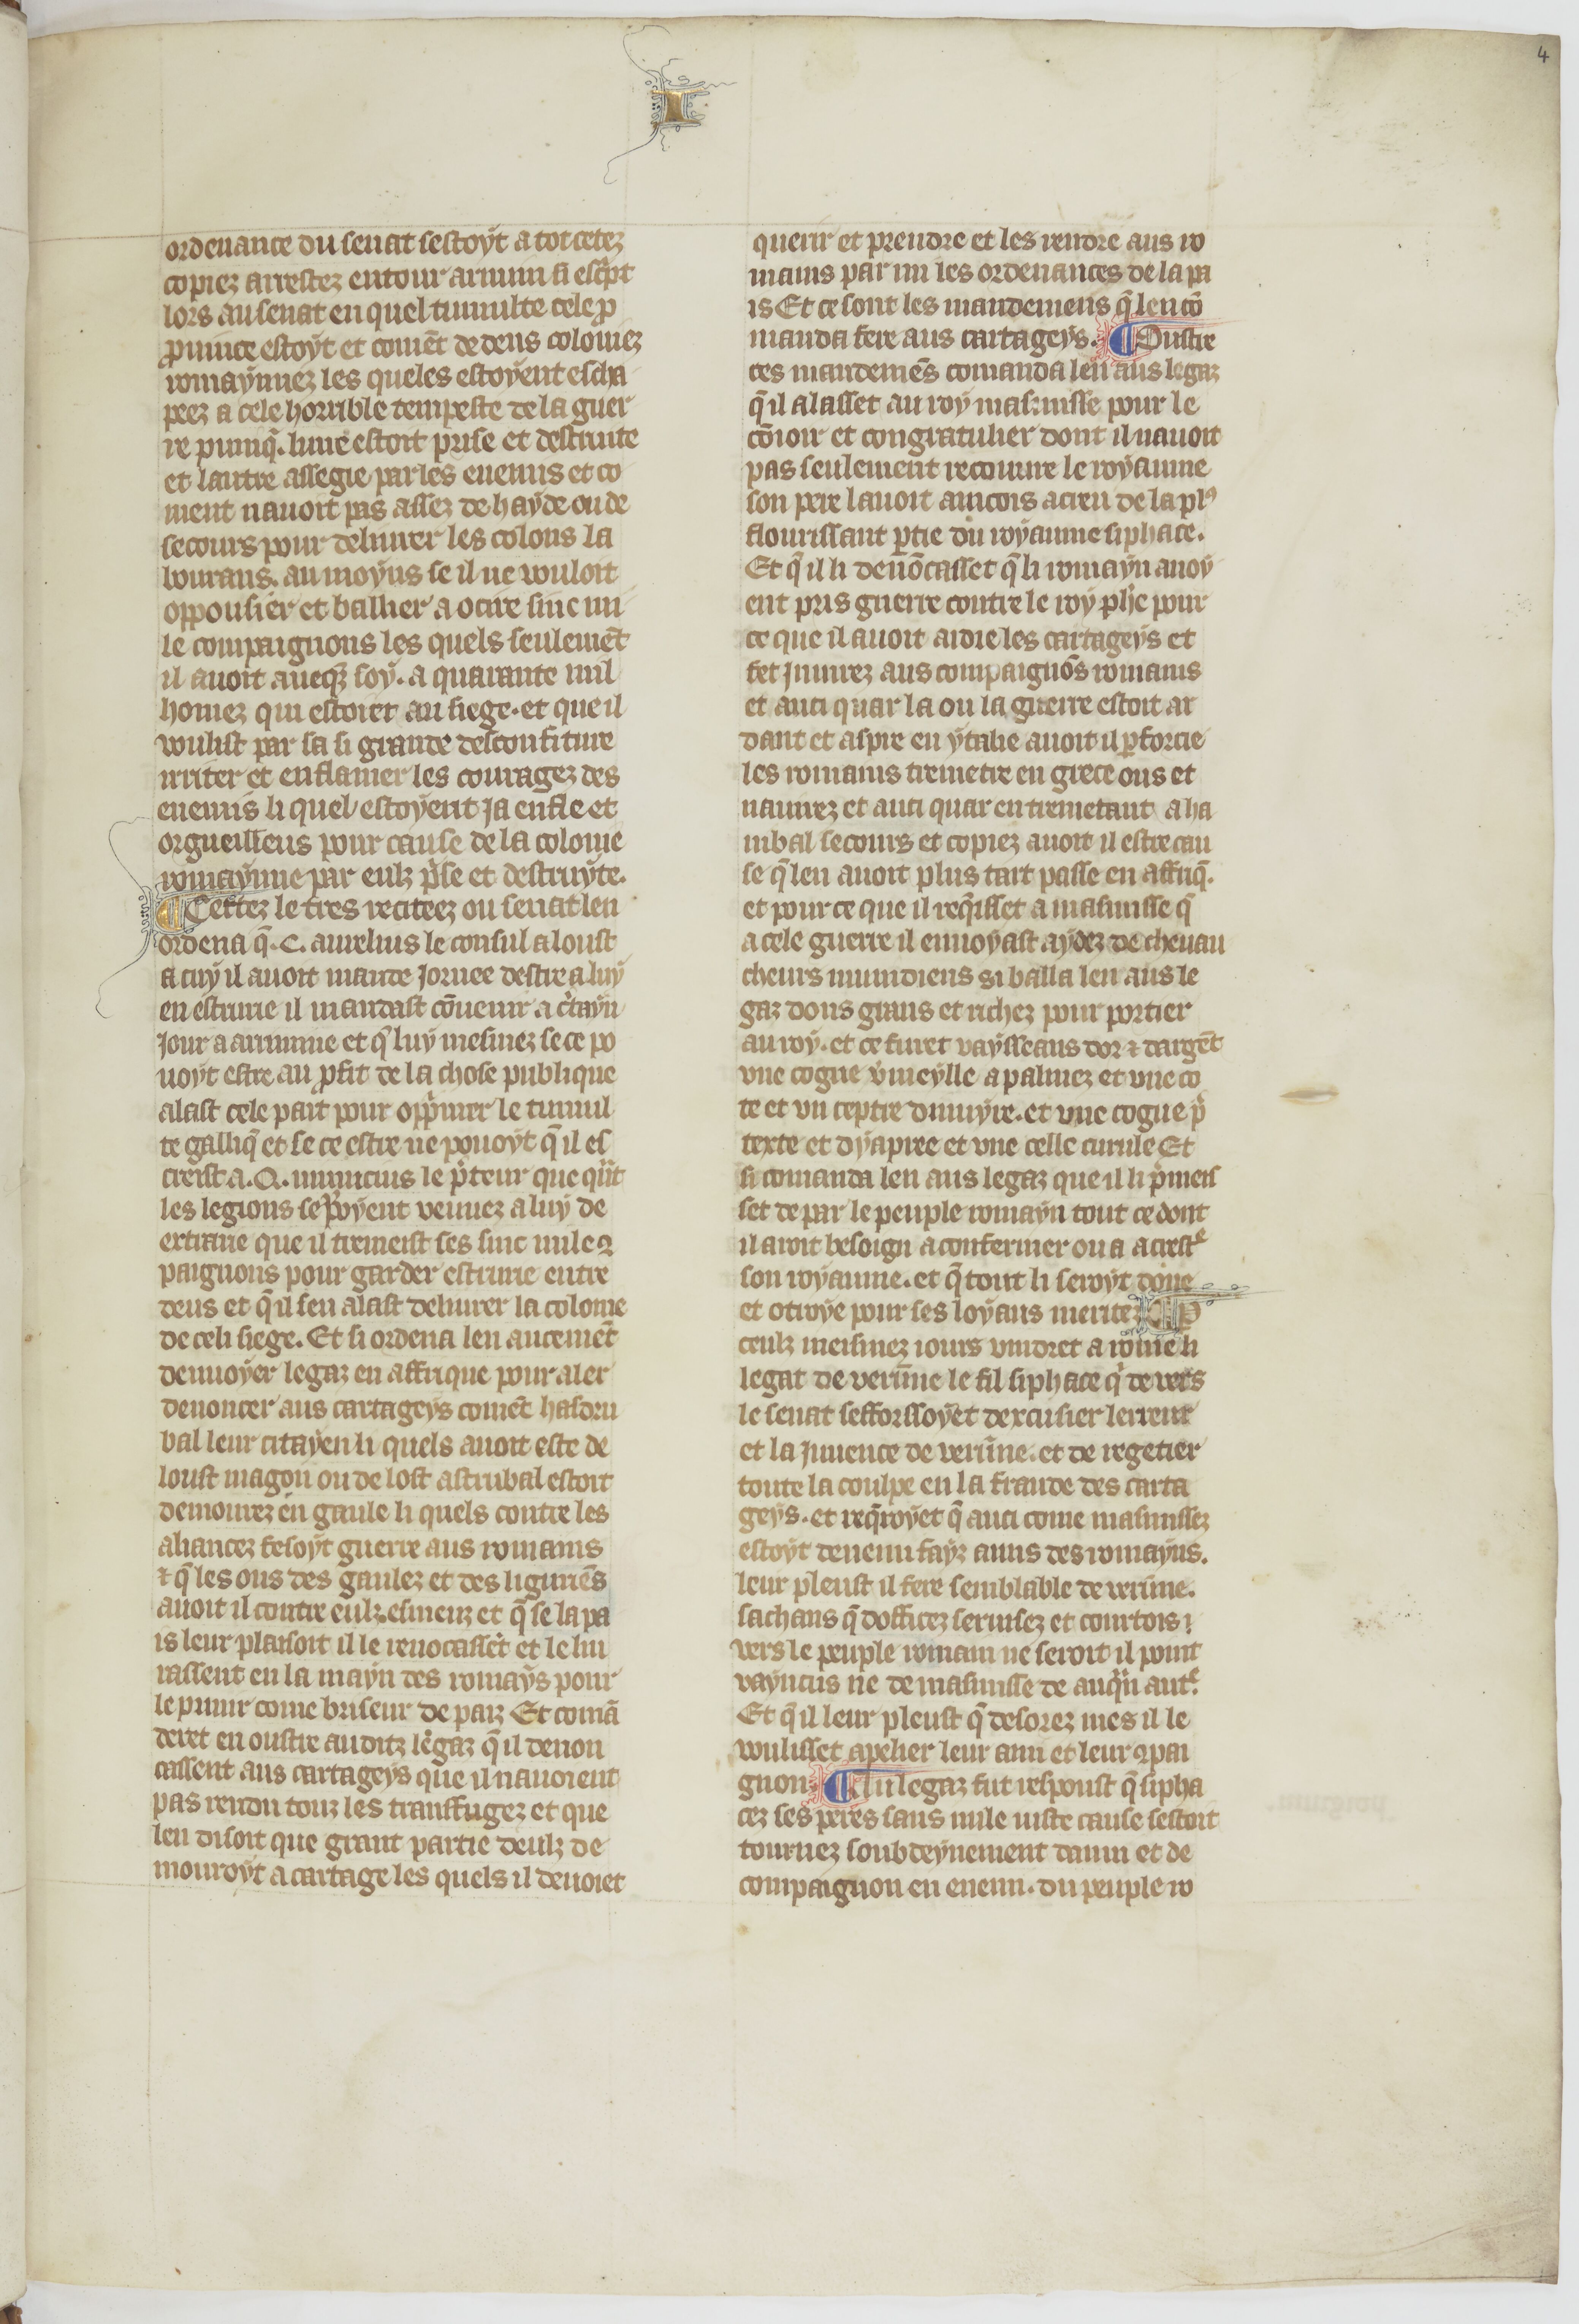 4
I
ordenance du senat sestoyt a tot cetez
copiez arrestez entour arimin si escͥpt
lors au senat en quel tumulte cele ꝓ
ꝓuince estoyt et comēt dedens coloniez
romaynnez les queles estoyent escha
peez a cele horrible tempeste de la guer
re puniq̄. lune estoit prise et destruite
et lautre assegie par les enemis et co
ment nauoit pas assez de hayde ou de
secours pour deliurer les colons la
bourans. au moyns se il ne vouloit
oppousier et baillier a ocirre sinc mi
le compaignons les quels seulemēt
il auoit auecq̄z soy. a quarante mil
homez qui estoiet au siege. et que il
voulist par sa si grande desconfiture
irriter et enflamer les couragez des
enemis li quel estoyent ja enfle et
orgueilleus pour cause de la colonie
romaynne par eulz pͥse et destruyte.
¶ Certez le tres reciteez ou senat len
ordena q̄. C. aurelius le consul a loust
a cuy il auoit mande jornee destre a luy
en estrurie il mandast cōuenir a cͭtayn
jour a arriminie et qͥ luy mesmez se ce po
uoyt estre au ꝓfit de la chose publique
alast cele part pour opp̄mer le tumul
te galliq̄ et se ce estre ne pouoyt q̄ il es
creist a. Q. minucius le p̄teur que qn̄t
les legions seroyent venuez a luy de
extraue que il tremeist ses sinc mile ꝯ
paignons pour garder estrurie entre
deus et q̄ il sen alast deliurer la colonie
de celi siege. Et si ordena len aucemēt
denuoyer legaz en affrique pour aler
denoncer aus cartageys comēt hasdru
bal leur citayen li quels auoit este de
loust magon ou de lost astrubal estoit
demourez en gaule li quels contre les
aliancez fesoyt guerre aus romains
⁊ q̄ les ous des gaulez et des liguriēs
auoit il contre eulz esmeuz et q̄ se la pa
is leur plaisoit il le reuocassēt et le liu
rassent en la mayn des romays pour
le punir come briseur de paiz Et comā
deret en oustre au ditz legaz q̄ il denon
cassent aus cartageys que il nauoient
pas rendu touz les transfugez et que
len disoit que grant partie deulz de
mouroyt a cartage les quels il deuoiet
querir et prendre et les rendre aus ro
mains par mi les ordenances de la pa
is Et ce sont les mandemens q̄ len cō
manda fere aus cartageys. ¶ Oustre
ces mandemēs comanda len aus legaz
q̄ il alasset au roy masinisse pour le
cōioir et congratulier dont il nauoit
pas seulement recouure le royaume
son pere lauoit aincois acreu de la plꝰ
flourissant ꝑtie du royaume siphace.
Et q̄ il li denōcasset q̄ li romayn auoy
ent pris guerre contre le roy phͤ pour
ce que il auoit aidie les cartageys et
fet jniurez aus compaignōs romains
et auci quar la ou la guerre estoit ar
dant et aspre en ytalie auoit il ꝑforcie
les romains tremetre en grece ous et
nauirez et auci quar en tremetant a ha
nibal secours et copiez auoit il estre cau
se q̄ len auoit plus tart passe en affriq̄.
et pour ce que il req̄isset a masinisse q̄
a cele guerre il enuoyast aydez de cheuau
cheurs numidiens si balla len aus le
gaz dons grans et richez pour portier
au roy. et ce furet vaysseaus dor ⁊ dargēt
vne cogue v̄meylle a palmez et vne co
te et vn ceptre diuuyre. et vne cogue p̄
texte et dyapree et vne celle curule Et
si comanda len aus legaz que il li p̄meis
set de par le peuple romayn tout ce dont
il aroit besoign a confermer ou a acrestͤ
son royaume. et q̄ tout li seroyt done
et otroye pour ses loyaus meritez ¶ P
ceulz meismez iours vindret a rome li
legat de verūne le fil siphace qͥ de vers
le senat sefforssoyet dexcusier lerreur
et la juuence de verūne. et de regetier
toute la coulpe en la fraude des carta
geys. et req̄royet q̄ auci come masinissez
estoyt deuenu fayz amis des romayns.
leur pleust il fere semblable de verūne.
sachans q̄ dofficez seruisez et courtois
vers le peuple romain ne seroit il point
vayncus ne de masinisse de auqūn autͤ.
Et q̄ il leur pleust q̄ desorez mes il le
voulisset apelier leur ami et leur ꝯpai
gnon. ¶ A lu legaz fut respoust q̄ sipha
cez ses peres sans nule iuste cause sestoit
tournez soubdeynement dami et de
compaignon en enemi. du peuple ro